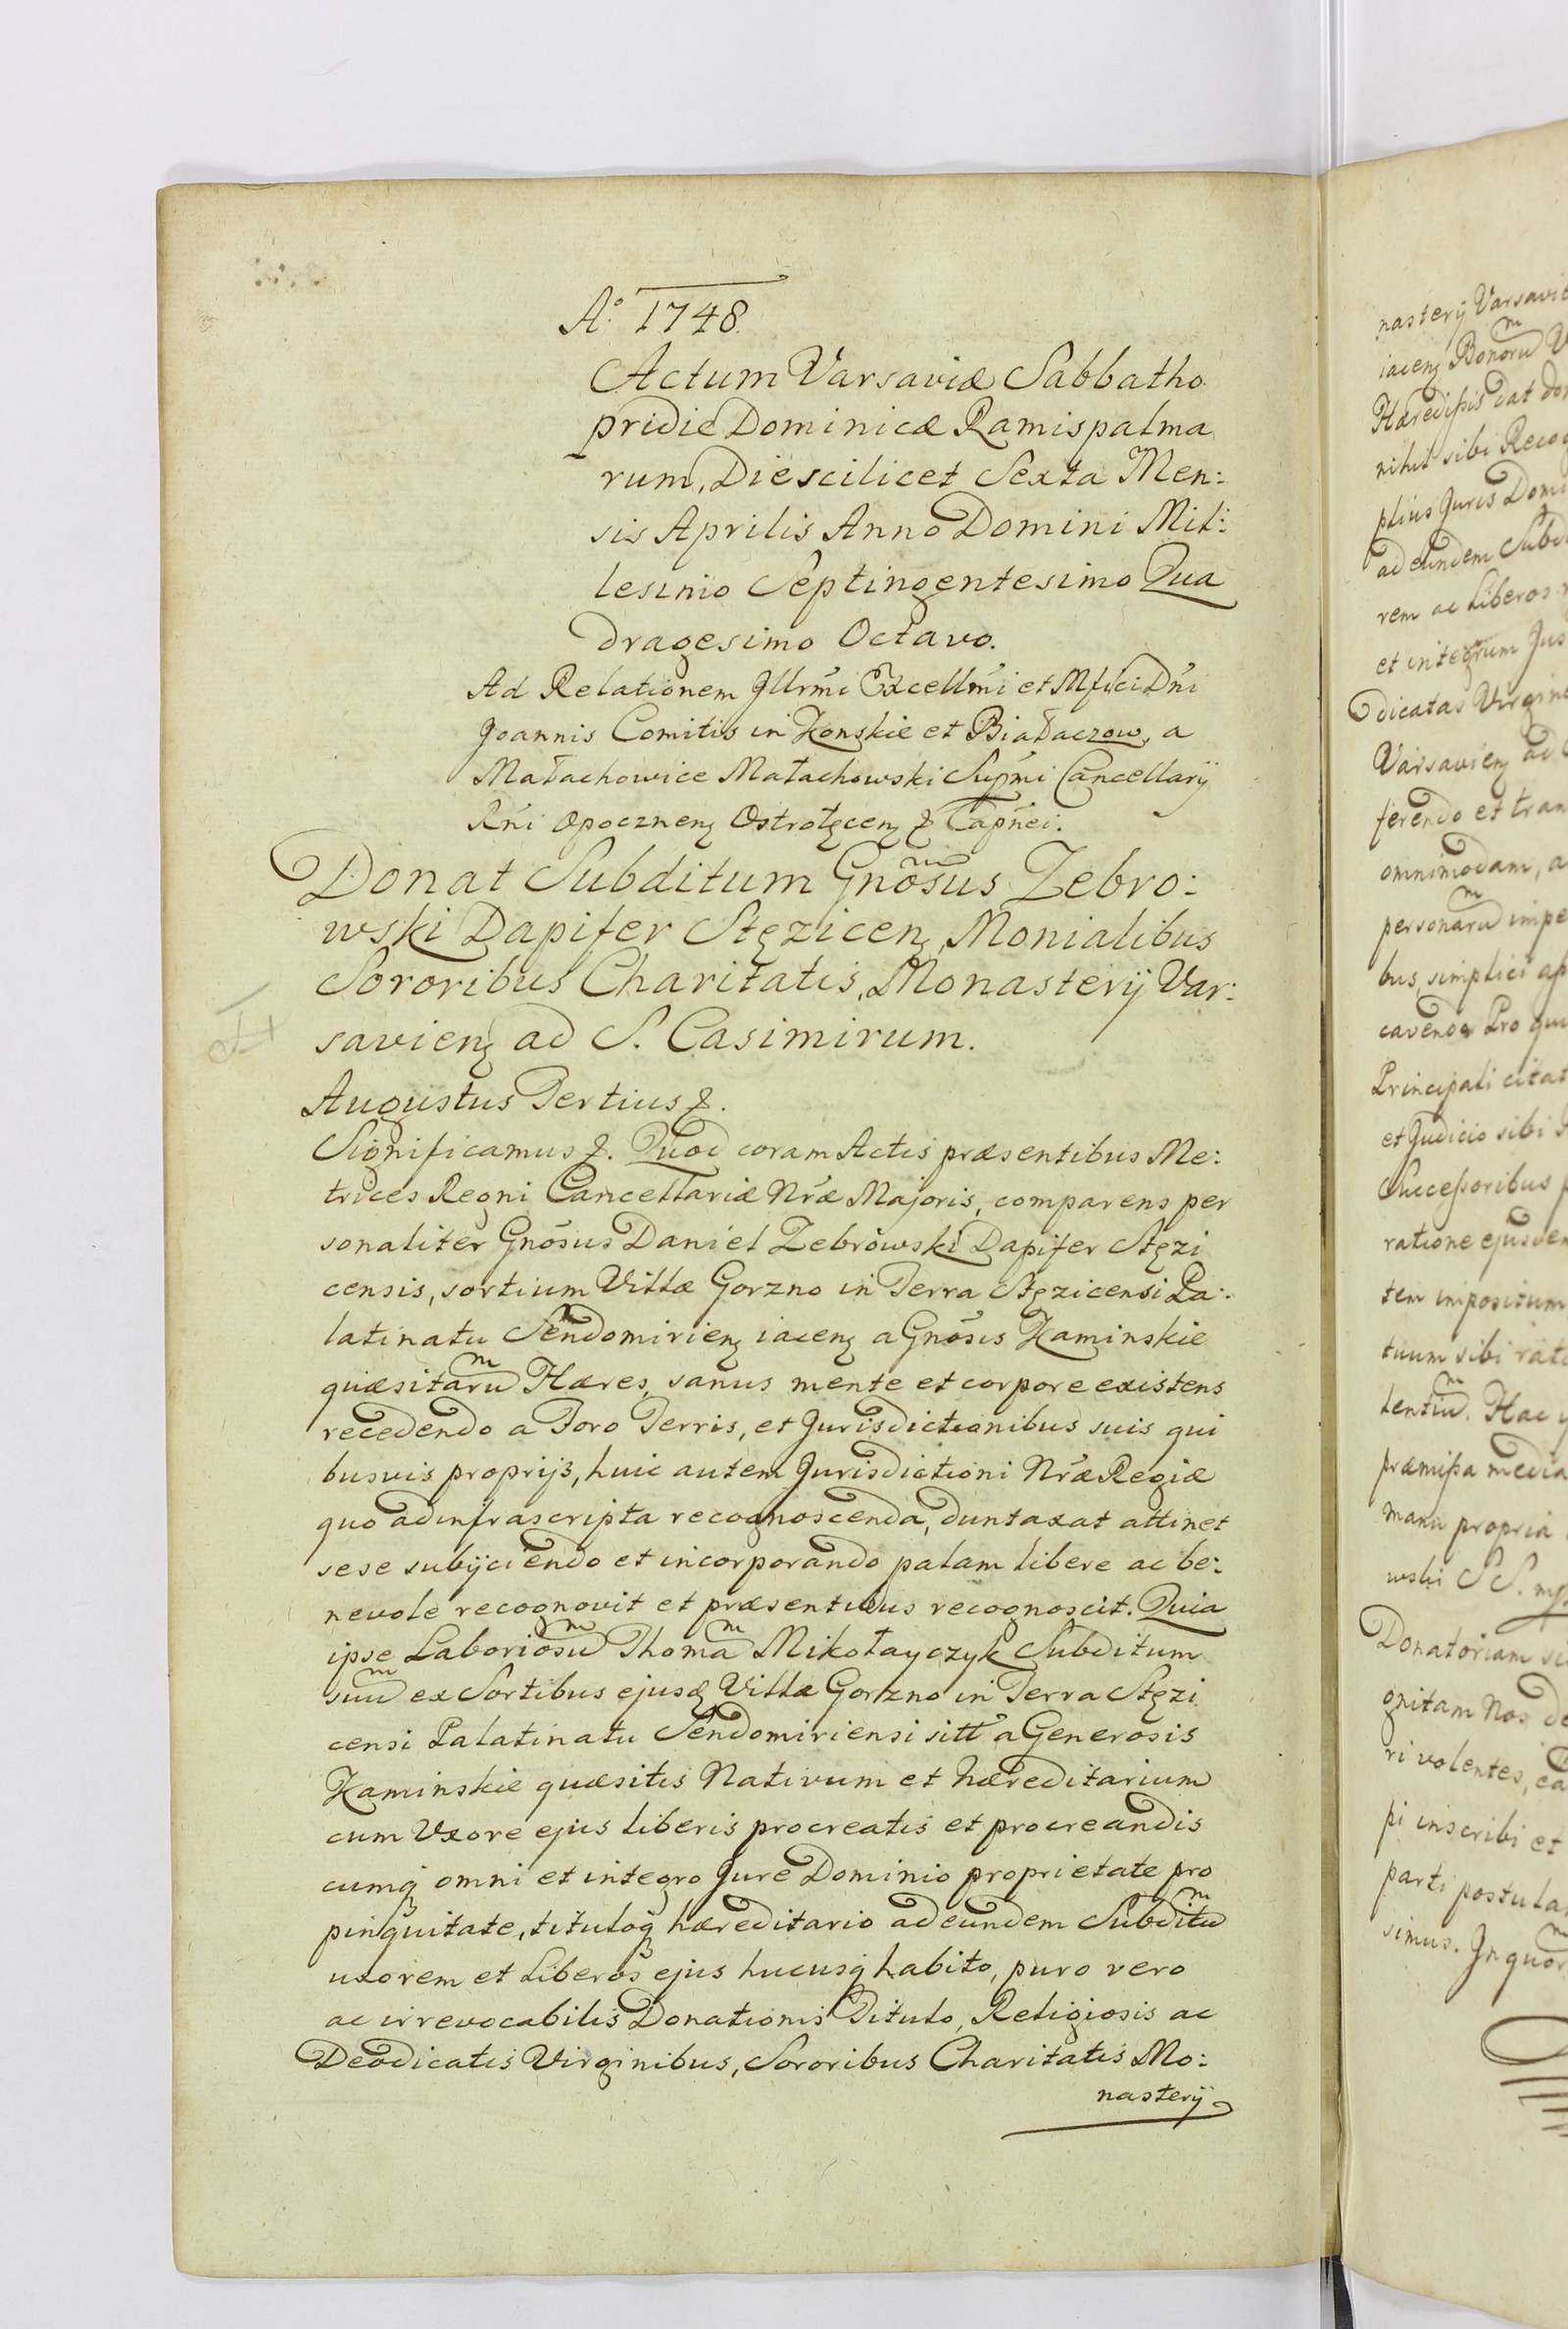 Aº 1748.
Actum Varsaviæ Sabbatho
pridie Dominicæ Ramispalma
rum, Die scilicet Sexta Men:
sis Aprilis Anno Domini Mil:
lesimo Septingentesimo Qua
dragesimo Octavo.
Ad Relationem Jllrmi Excellmi et Mfici Dni
Joannis Comitis in Konskie et Białaczow, a
Małachowice Małachowski Supmi Cancellarij
Rni Opocznen Ostrołęcen & Capnei.
Donat Subditum Gnosus Zebro:
wski Dapifer Stęzicen, Monialibus
Sororibus Charitatis, Monasterij Var:
savien ad S. Casimirum.
Augustus Tertius &.
Significamus &. Quod coram Actis præsentibus Me:
trices Regni Cancellariæ Nræ Majoris, comparens per
sonaliter Gnosus Daniel Zebrowski Dapifer Stęzi
censis, sortium Villæ Gorzno in Terra Stęzicensi Pa:
latinatu Sendomirien iacen a Gnosis Kaminskie
quæsitarum Hæres, sanus mente et corpore existens
recedendo a Foro Terris, et Jurisdictionibus suis qui
busvis proprijs, huic autem Jurisdictioni Nræ Regiæ
quo ad infrascripta recognoscenda, duntaxat attinet
sese subijciendo et incorporando palam libere ac be:
nevole recognovit et præsentibus recognoscit. Quia
ipse Laboriosum Thomam Mikołayczyk Subditum
suum ex Sortibus ejusd Villæ Gorzno in Terra Stęzi
censi Palatinatu Sendomiriensi sitt a Generosis
Kaminskie quæsitis Nativum et hæreditarium
cum Uxore ejus liberis procreatis et procreandis
cumq omni et integro Jure Dominio proprietate pro
pinquitate, tituloq hæreditario ad eundem Subditum
uxorem et Liberos ejus hucusq habito, puro vero
ac irrevocabilis Donationis Titulo, Religiosis ac
Deodicatis Virginibus, Sororibus Charitatis Mo:
nasterij
nasterij Varsavie
iacen Bonorum V
Hæredissis dat do
nihil sibi Reco
ptius Juris Domi
ad eundem Subdi
rem ac Liberos
et integrum Jus
dicatas Virgine
Varsavien ad
ferendo et tran
omnimodam, a
personarum impe
bus, simplici ap
cavendo Pro qu
Principali citat
et Judicio sibi
Successoribus
ratione ejusdem
tem impositum
tuum sibi rat
lentium. Hac
præmissa media
manu propria
wski S S. mp
Donatoriam
gnitam Nos de
ri volentes, ea
pi inscribi et
parti postula
simus. In quor